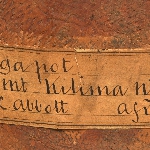 ga pot
mt Kilima n
abbott afr